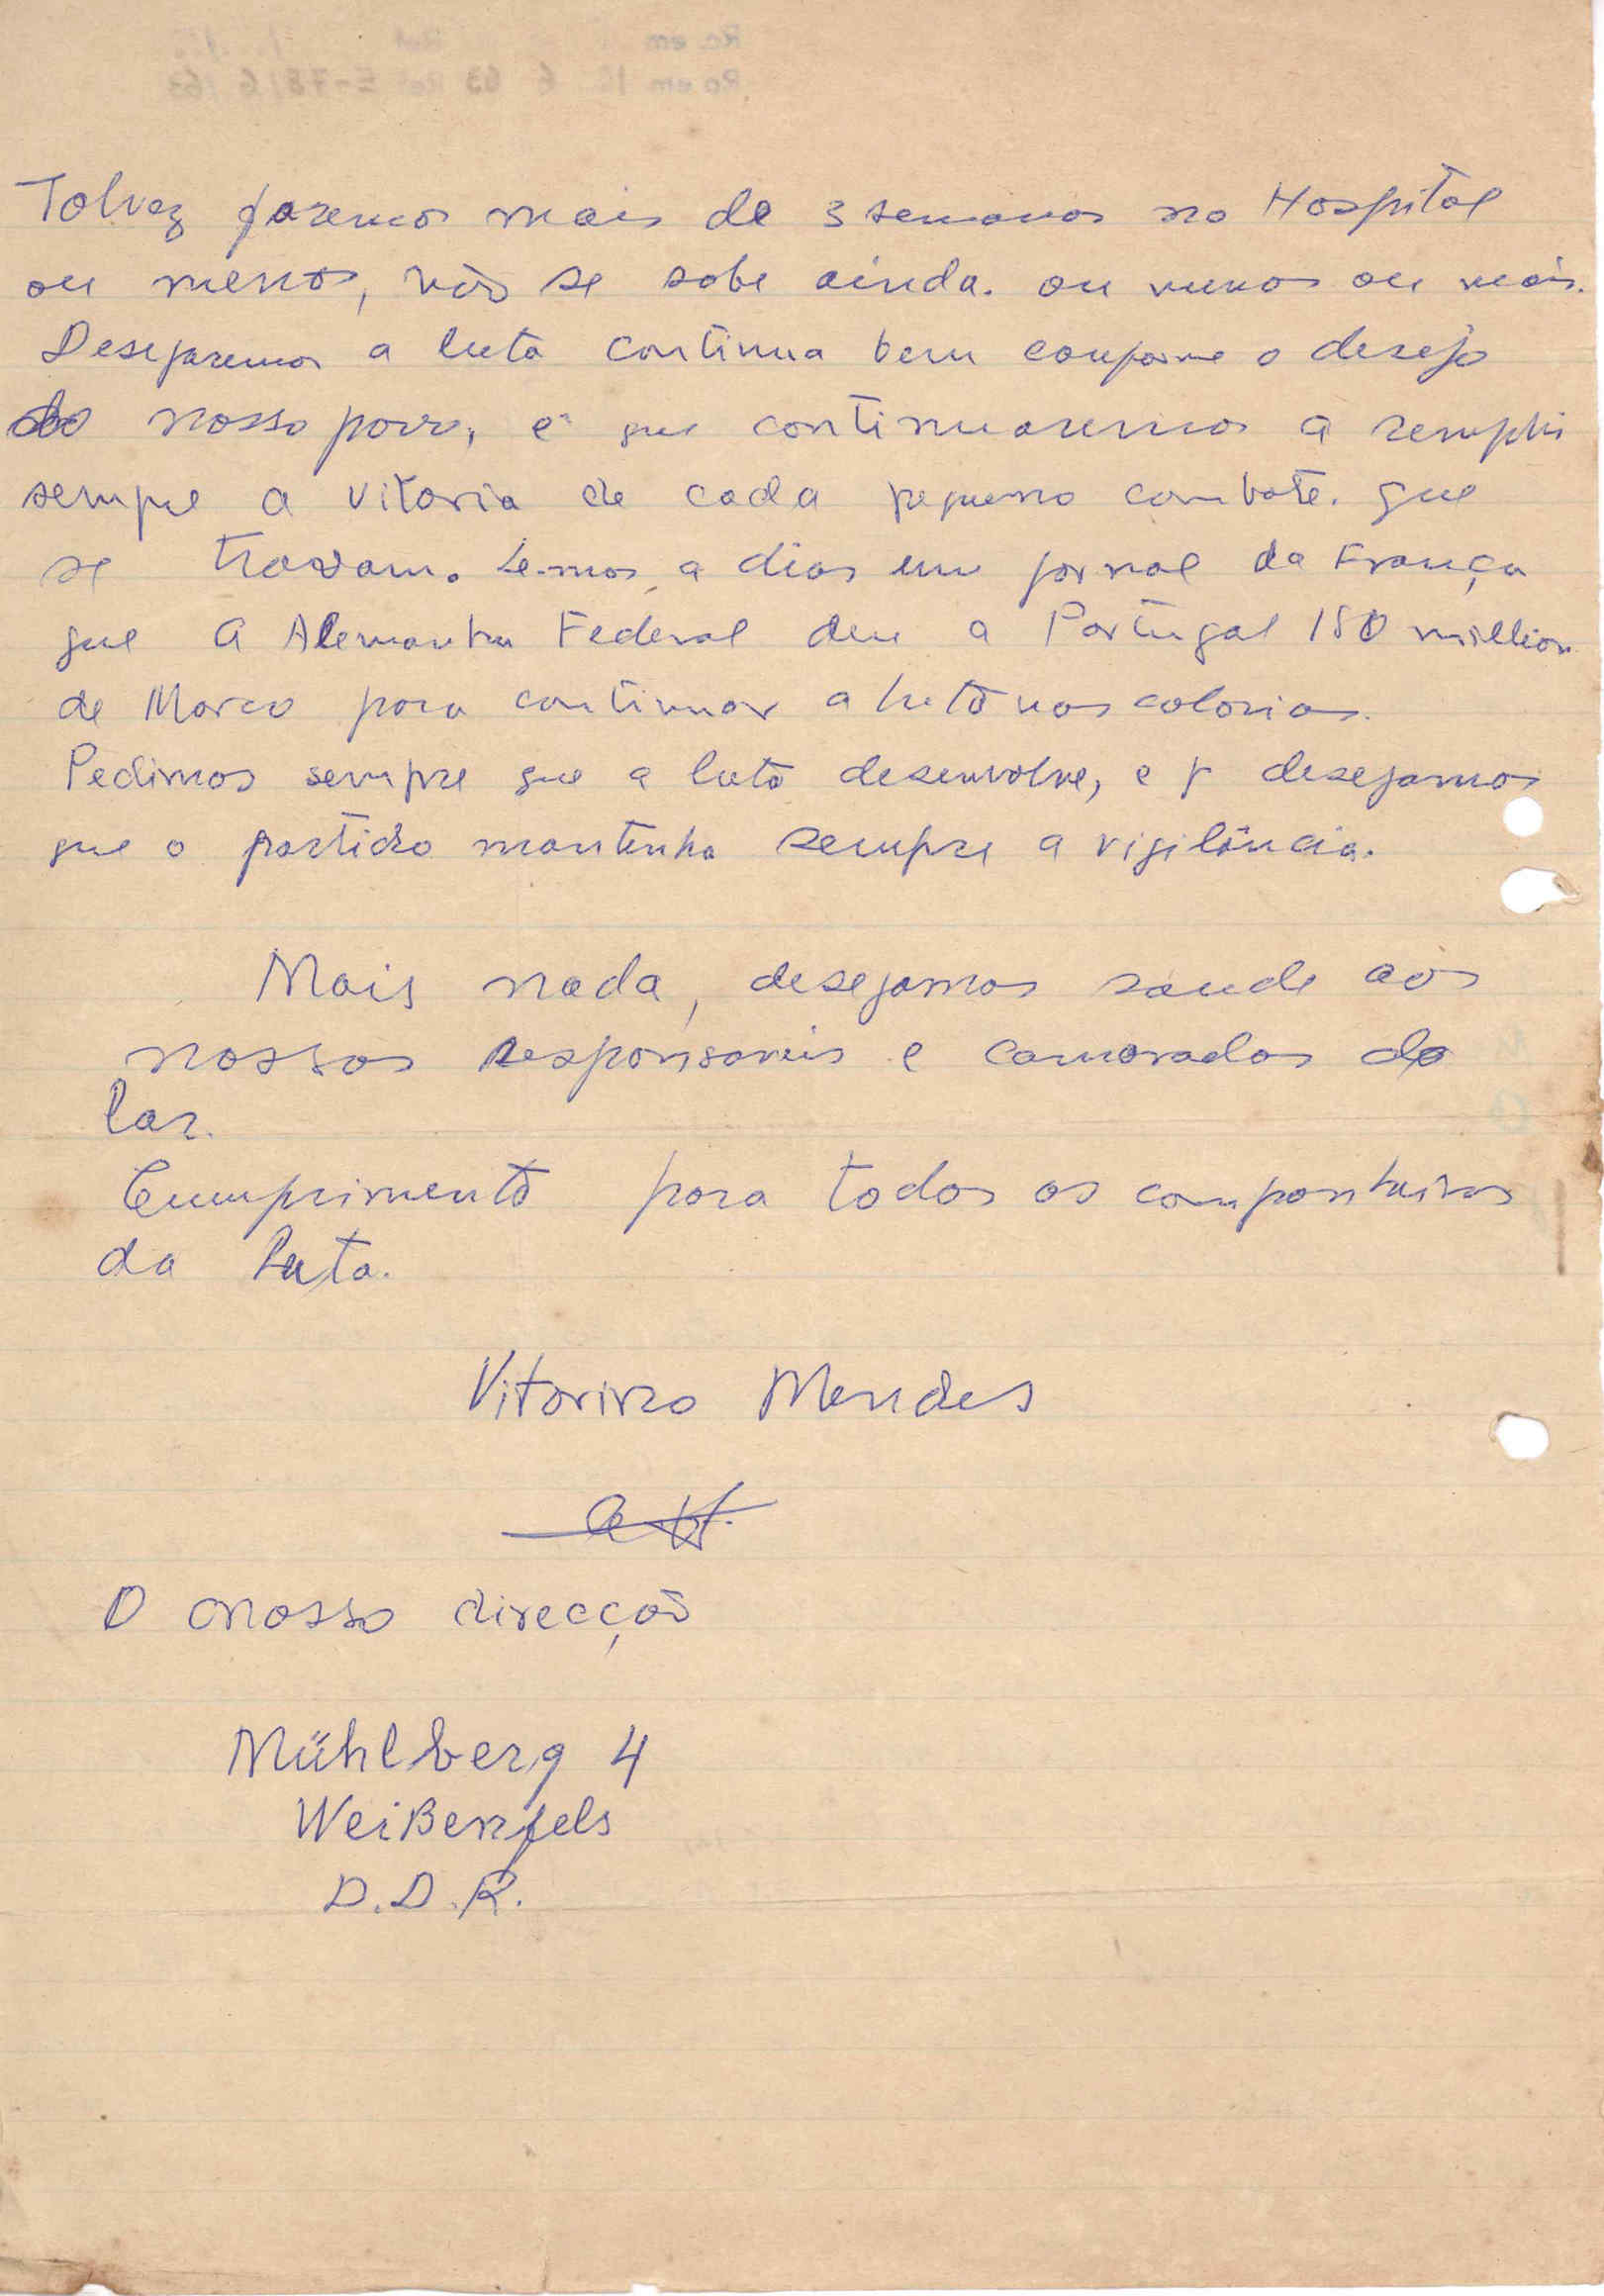 Talvez faremos mais de 3 semanas no Hospital
ou menos, não se sabe ainda. ou menos ou mais.
Desejaremos a luta continua bem conforme o desejo
do nosso povo, e que continuaremos a
sempre a vitoria de cada pequeno combate. que
se travam. Lemos a dias um jornal da França
que a Alemanha Federal deu a Portugal 180 million
de Marco para continuar a luta nas colonias.
Pedimos sempre que a luta desenvolve, e desejamos
que o partido mantenha sempre a vigilância.
Mais nada, desejamos saude aos
nossos responsaveis e camaradas do
lar.
Cumprimento para todos os companheiros
da luta.
Vitorino Mendes
O nosso direcção
Mühlberg 4
Weißenfels
D.D.R.